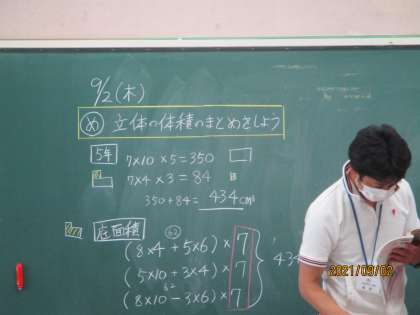 9/2(木)
め 立体の体積のまとめをしよう
5年 7×10×5=350
7×4×3=84
350+84=434cm³
底面積 62
(8×4+5×6)×7
(5×10+3×4)×7
62
(8×10-3×6)×7
434
2021/09/02